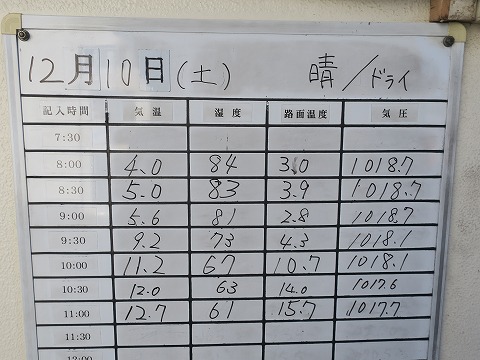 12月10日(土) 晴/ドライ
記入時間 気温 湿度 路面温度 気圧
7:30
8:00 4.0 84 3.0 1018.7
8:30 5.0 83 3.9 1018.7
9:00 5.6 81 2.8 1018.7
9:30 9.2 73 4.3 1018.1
10:00 11.2 67 10.7 1018.1
10:30 12.0 63 14.0 1017.6
11:00 12.7 61 15.7 1017.7
11:30
12:00